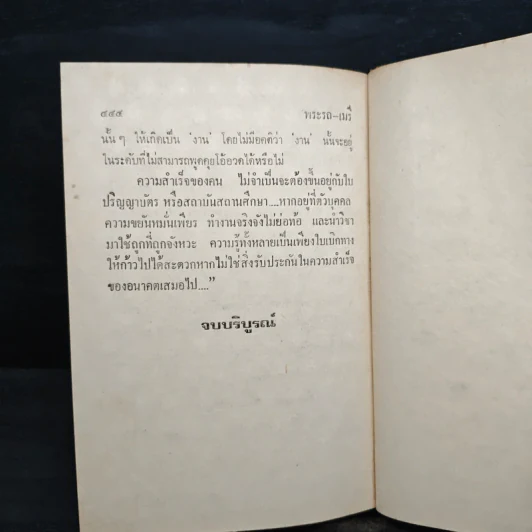 ๔๙๔ พระรถ-เมรี
นั้น ๆ ให้เกิดเป็น 'งาน' โดยไม่มีอคติว่า 'งาน' นั้นจะอยู่
ในระดับที่ไม่สามารถพูดคุยโอ้อวดได้หรือไม่
ความสำเร็จของคน ไม่จำเป็นจะต้องขึ้นอยู่กับใบ
ปริญญาบัตร หรือสถาบันสถานศึกษา....หากอยู่ที่ตัวบุคคล
ความขยันหมั่นเพียร ทำงานจริงจังไม่ย่อท้อ และนำวิชา
มาใช้ถูกที่ถูกจังหวะ ความรู้ทั้งหลายเป็นเพียงใบเบิกทาง
ให้ก้าวไปได้สะดวกหากไม่ใช่สิ่งรับประกันในความสำเร็จ
ของอนาคตเสมอไป...."
จบบริบูรณ์